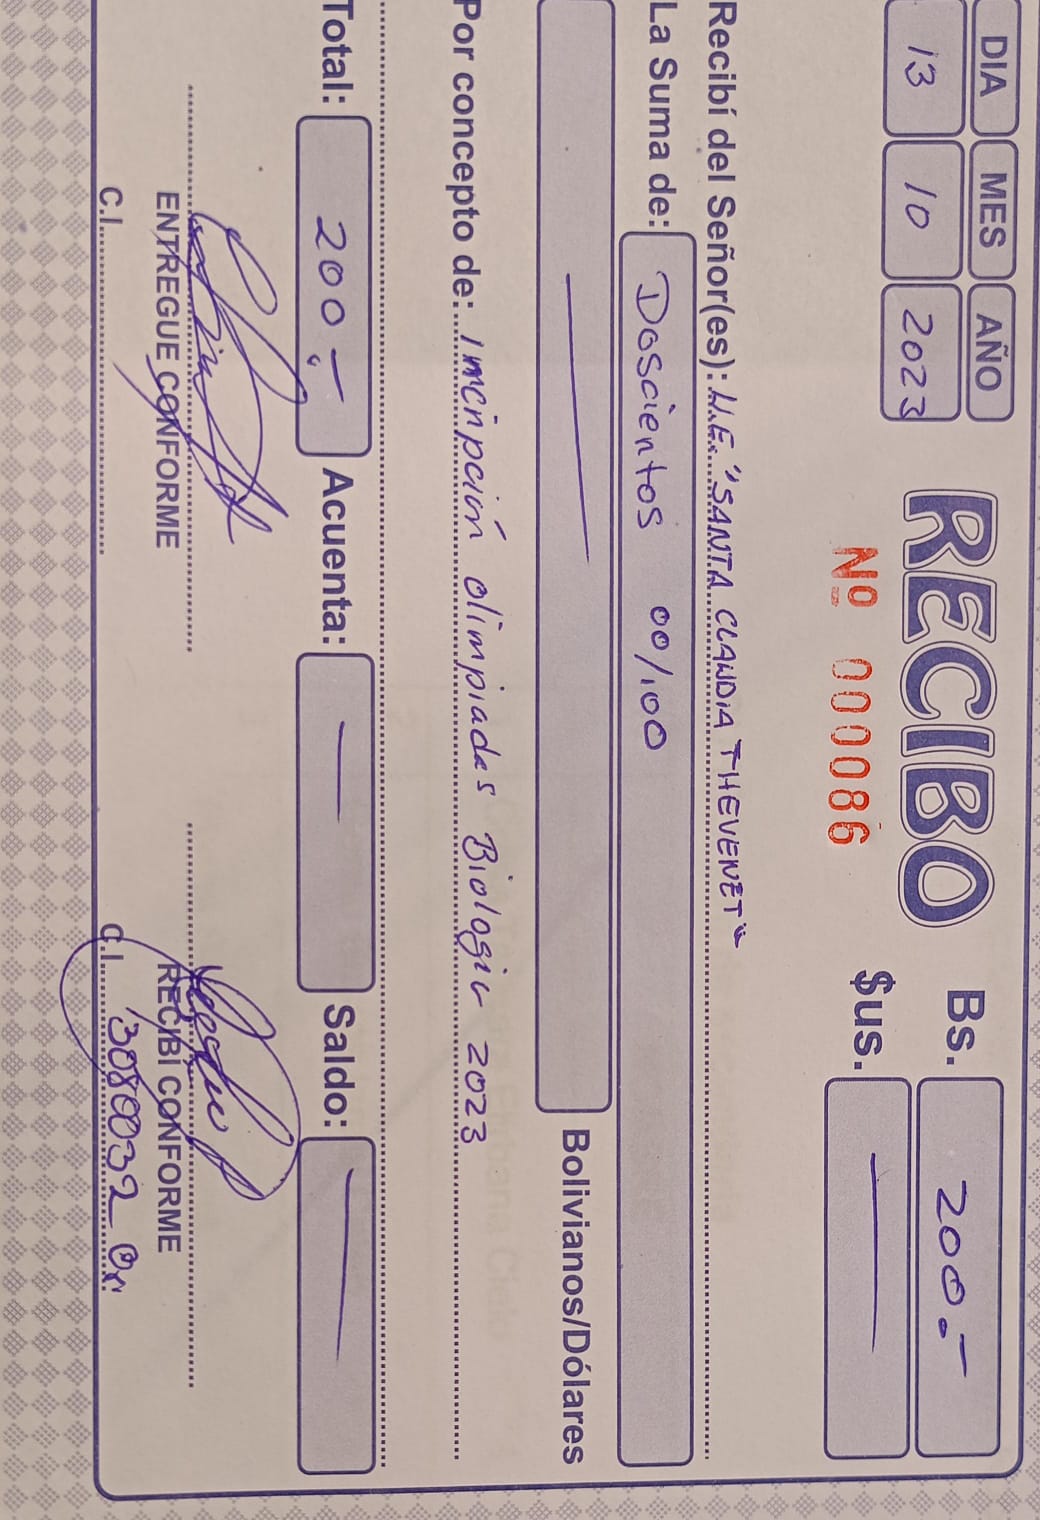 DIA MES AÑO
13 10 2023
RECIBO
Nº 000086
Bs. 200.-
$us. —
Recibí del Señor(es): U.E. "SANTA CLAUDIA THEVENET"
La Suma de: Doscientos 00/100
— Bolivianos/Dólares
Por concepto de: Imcripción olimpiadas Biologia 2023
Total: 200.- Acuenta: — Saldo: —
ENTREGUE CONFORME RECIBÍ CONFORME
C.I. C.I. 3080032 Or.